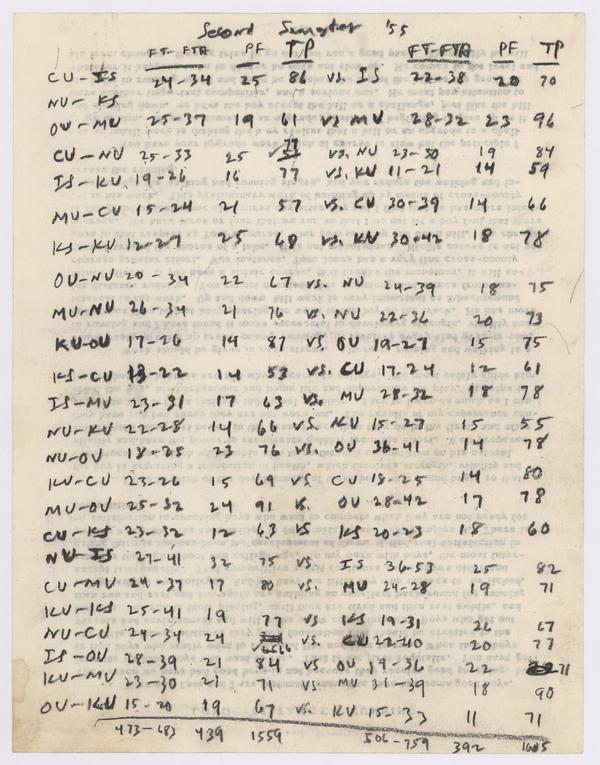 Second Semester '55
FT-FTA PF TP FT-FTA PF TP
CU-IS 24-34 25 86 vs. IS 22-38 20 70
NU-KS
OU-MU 25-37 19 61 vs MU 28-32 23 96
CU-NU 25-33 25 77 vs. NU 23-30 19 84
IS-KU 19-26 16 77 vs. KU 11-21 14 59
MU-CU 15-24 21 57 vs. CU 30-39 14 66
KS-KU 12-27 25 68 vs. KU 30-42 18 78
OU-NU 20-34 22 67 vs. NU 24-39 18 75
MU-NU 26-34 21 76 vs. NU 22-36 20 73
KU-OU 17-26 14 87 vs. OU 19-27 15 75
KS-CU 13-22 14 53 vs. CU 17-24 12 61
IS-MU 23-31 17 63 vs. MU 28-32 18 78
NU-KU 22-28 14 66 vs KU 15-27 15 55
NU-OU 18-25 23 76 vs. OU 36-41 14 78
KU-CU 23-26 15 69 vs CU 18-25 14 80
MU-OU 25-32 24 91 vs. OU 28-42 17 78
CU-KS 23-32 12 63 vs KS 20-23 18 60
NU-IS 27-41 32 75 vs IS 36-53 25 82
CU-MU 24-37 17 80 vs. MU 24-28 19 71
KU-KS 25-41 19 77 vs KS 19-31 26 67
NU-CU 24-34 24 66 vs. CU 22-40 20 77
IS-OU 28-39 21 84 vs OU 19-36 22 71
KU-MU 23-30 21 71 vs MU 31-39 18 90
OU-KU 15-20 19 67 vs. KU 15-33 11 71
473-683 439 1559 506-759 392 1605